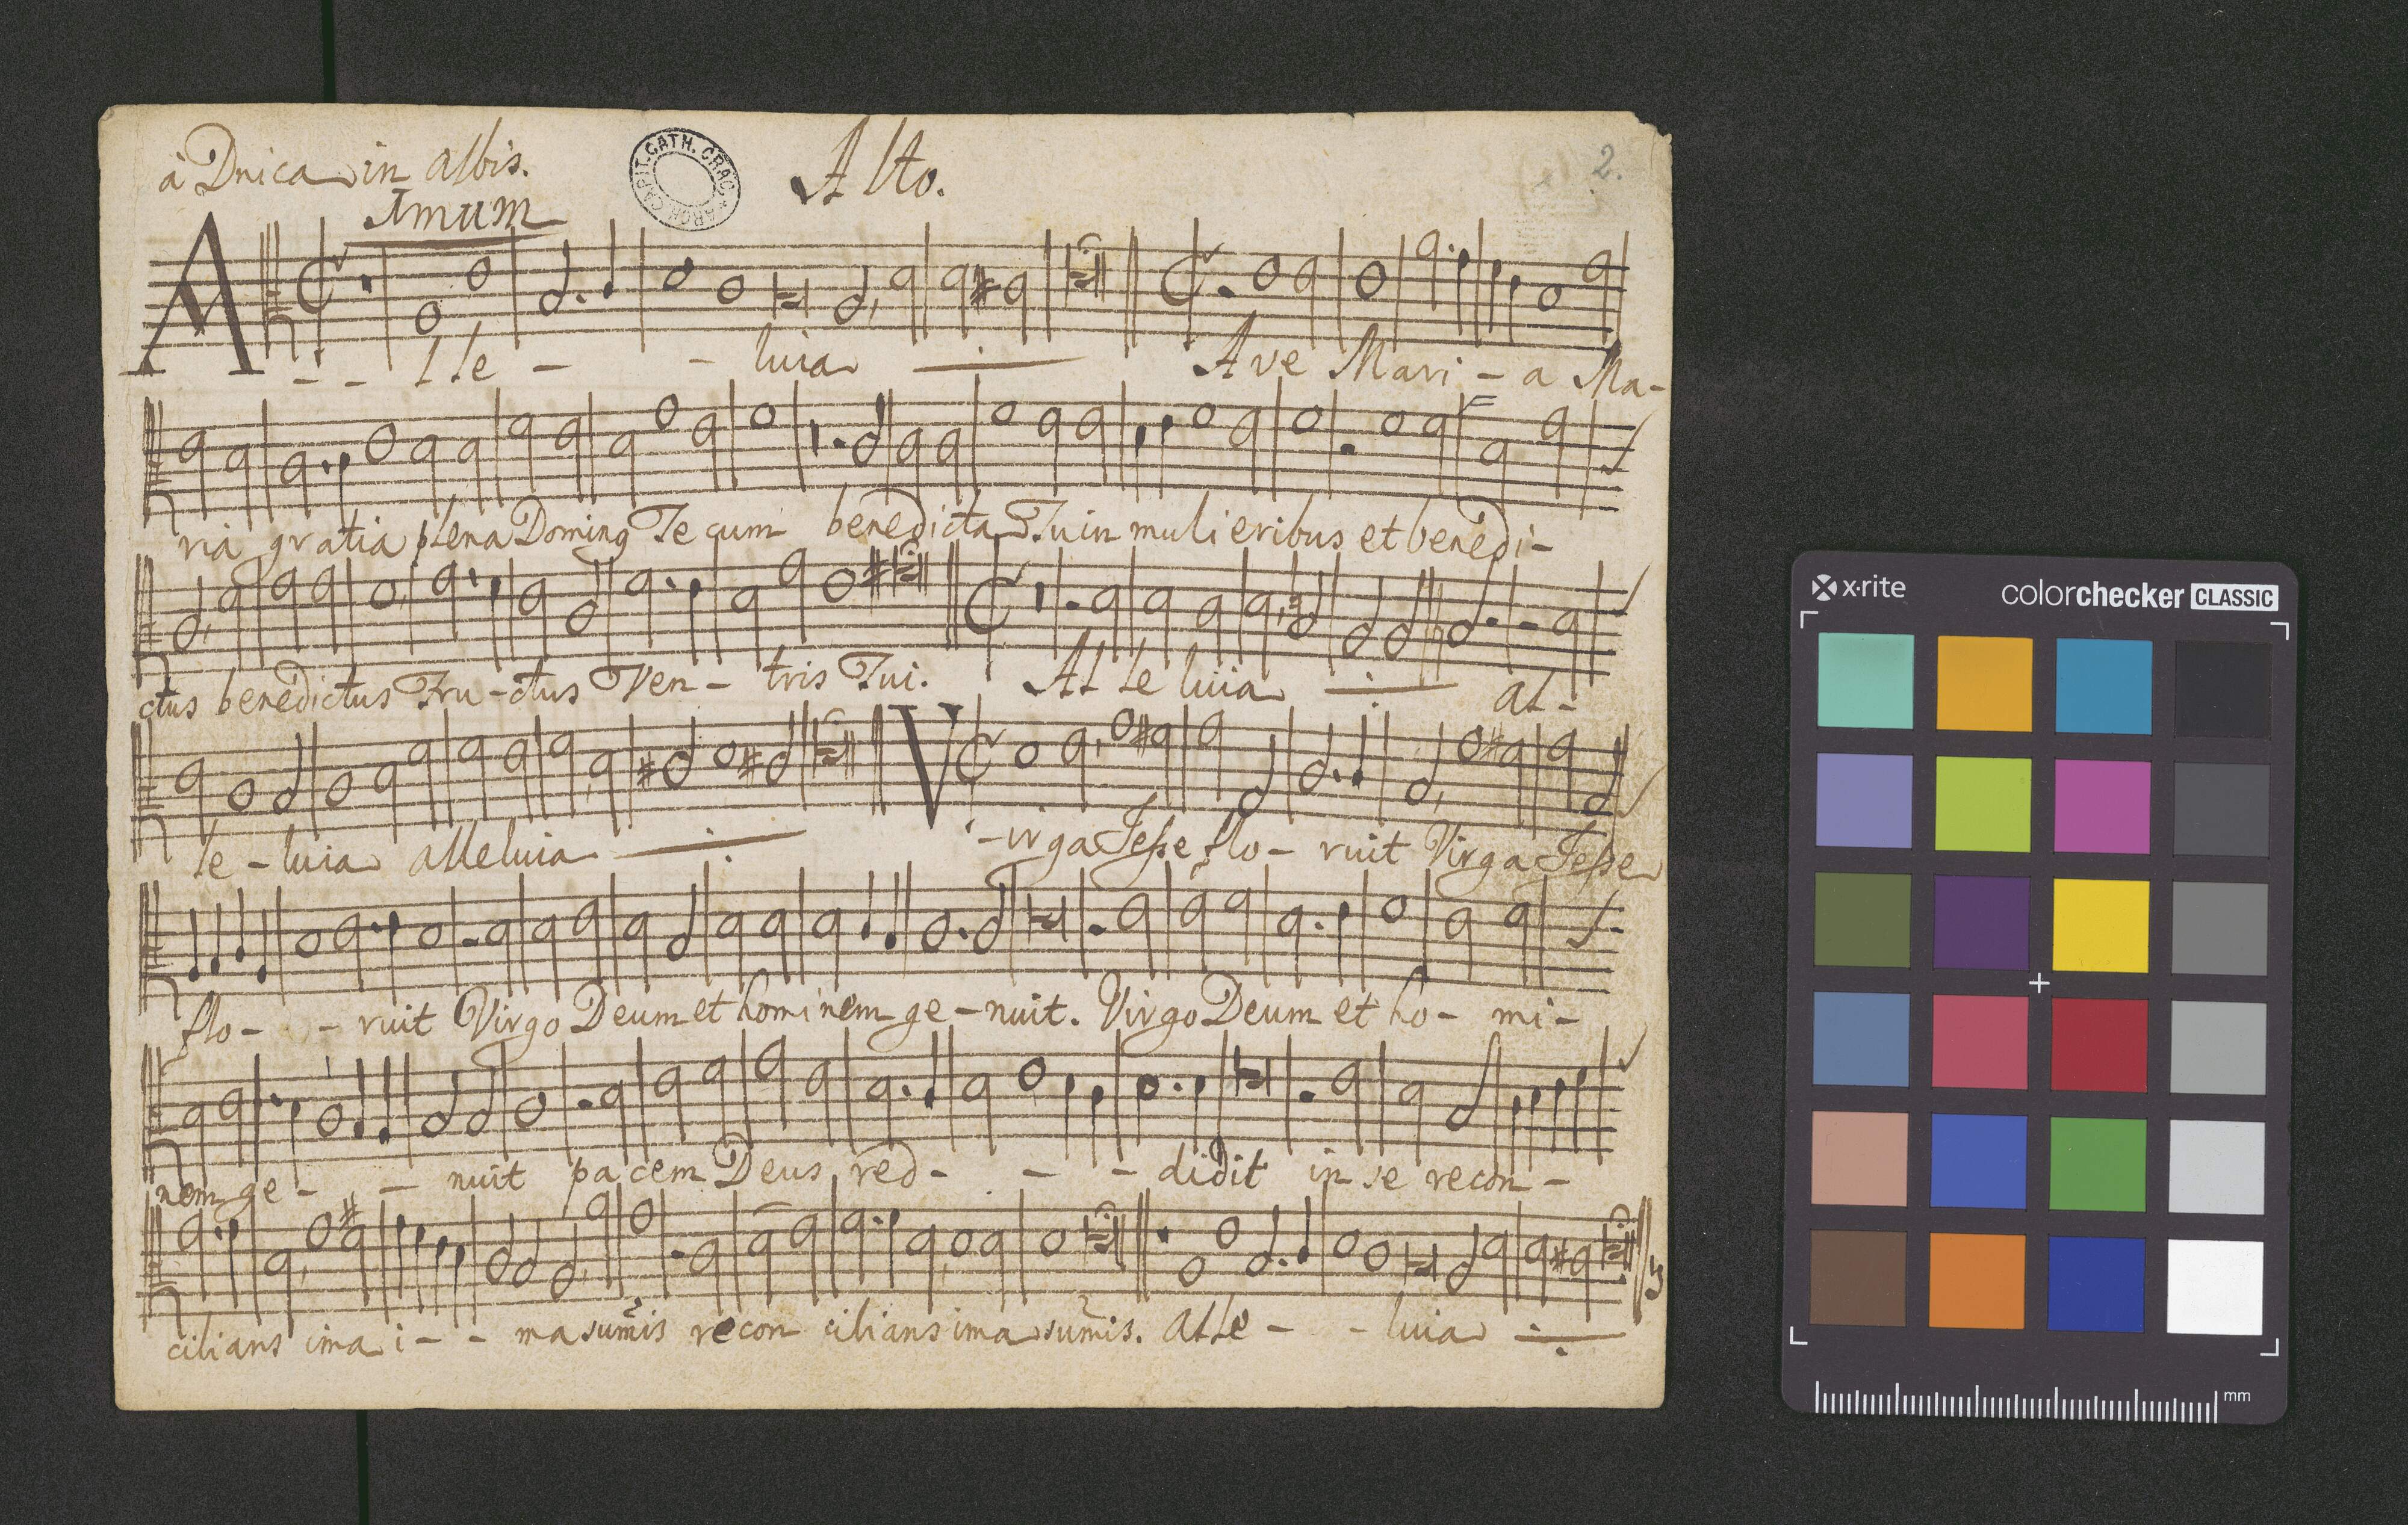 à Dnica in albis.
Alto.
2.
Imum
ARCH. CAPIT. CATH. CRAC.
A - - lle - - luia Ave Mari - a Ma-
ria gratia plena Doming Te cum benedicta Tu in muli eribus et benedi-
ctus benedictus Fru - ctus Ven - tris Tui. Al le luia al -
le - luia alleluia V - irga Jesse flo - ruit Virga Jesse
flo - - ruit Virgo Deum et hominem ge - nuit. Virgo Deum et ho - mi -
nem ge - - nuit pacem Deus red - - - didit in se recon -
cilians ima i - - ma sum̃is recon cilians ima sum̃is. Alle - - luia
x·rite
colorchecker CLASSIC
mm